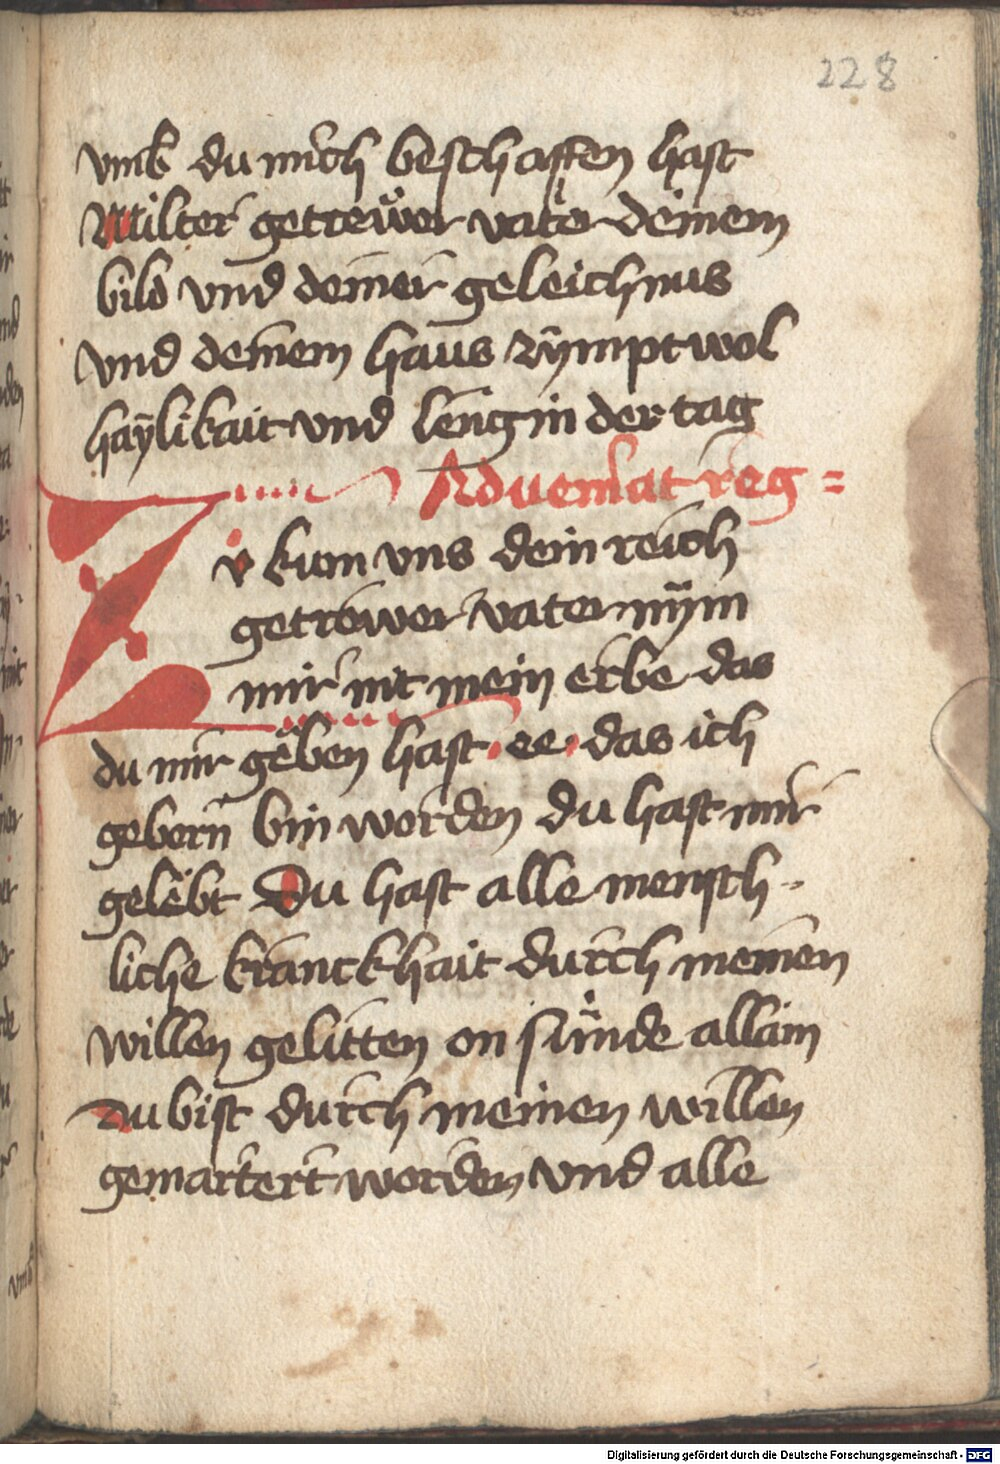 228
vmb du mich beschaffen hast
Milter getrewer vater deinem
bild vnd deiner geleichnus
vnd deinem haus zympt wol
haÿlikait vnd leng in der tag
Adueniat reg=
Zv kum vns dein reich
getrewer vater nÿm
mir nit mein erbe das
du mir geben hast ee das ich
gebern bin worden du hast mir
gelebt Du hast alle mensch-
liche kranckhait durch meinen
willen gelitten on sünde allain
du bist durch meinen willen
gemartert worden vnd alle
Digitalisierung gefördert durch die Deutsche Forschungsgemeinschaft - DFG